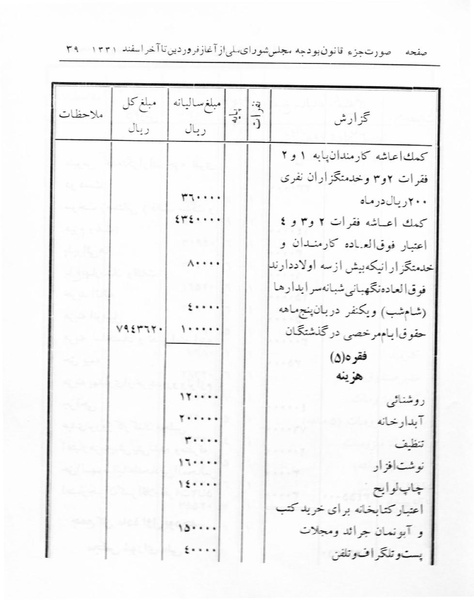 صفحه صورت جزء قانون بودجه مجلس شورای ملی از آغاز فروردین تا آخر اسفند ۱۳۳۱ ۳۹
گزارش نفرات پایه مبلغ سالیانه ریال مبلغ کل ریال ملاحظات
کمک اعاشه کارمندان پایه ۱ و ۲
فقرات ۲ و ۳ و خدمتگزاران نفری
۲۰۰ ریال در ماه ۳۶۰۰۰۰
کمک اعاشه فقرات ۲ و ۳ و ٤ ٤٣٤٠٠٠٠
اعتبار فوق العاده کارمندان و
خدمتگزارانیکه بیش از سه اولاد دارند ۸۰۰۰۰
فوق العاده نگهبانی شبانه سرایدارها
(شام شب) و یکنفر دربان پنج ماهه ٤٠٠٠٠
حقوق ایام مرخصی در گذشتگان ۱۰۰۰۰۰ ٧٩٤٣٦٢٠
فقره (۵)
هزینه
روشنائی ۱۲۰۰۰۰
آبدارخانه ۲۰۰۰۰۰
تنظیف ۳۰۰۰۰
نوشت افزار ۱۶۰۰۰۰
چاپ لوایح ١٤٠٠٠٠
اعتبار کتابخانه برای خرید کتب
و آبونمان جرائد و مجلات ۱۵۰۰۰۰
پست و تلگراف و تلفن ٤٠٠٠٠